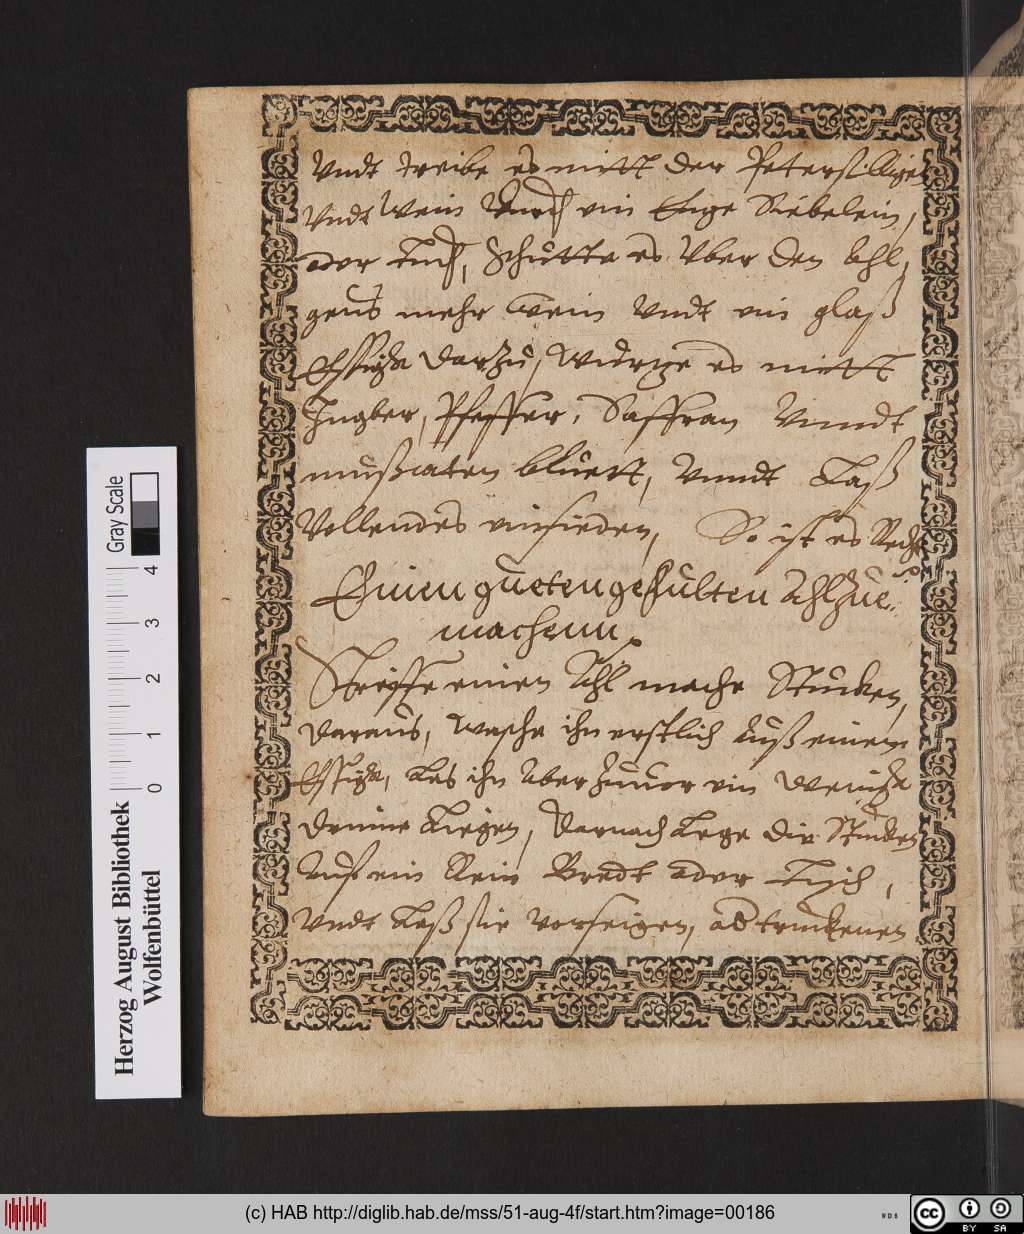 Vndt treibe es mitt der Petersilligen
Vndt Wein durch ein Enge Siebelein,
oder Tuch, Schutte es Vber den Ahl,
geus mehr wein Vndt ein glaß
Essigk darzu, Wurtze es mitt
Ingber, Pfeffer, Saffran Vnndt
mußcaten bluett, Vnndt Laß
Vollendes einsieden, So ist es Recht
Einen gueten gefulten Ahl Zue
machenn.
Streiffe einen Ahl mache Stucken,
daraus, wasche ihn erstlich Auß einem
Essigk, Las ihn Aber Zuuor ein Wenigk
drinne Liegen, Darnach Lege die Stucken
Auf ein Rein Bredt oder Tisch,
Vndt Laß sie verseigen, ad trucknen
Herzog August Bibliothek
Wolfenbüttel
Gray Scale
0 1 2 3 4
(c) HAB http://diglib.hab.de/mss/51-aug-4f/start.htm?image=00186
WDB
cc BY SA